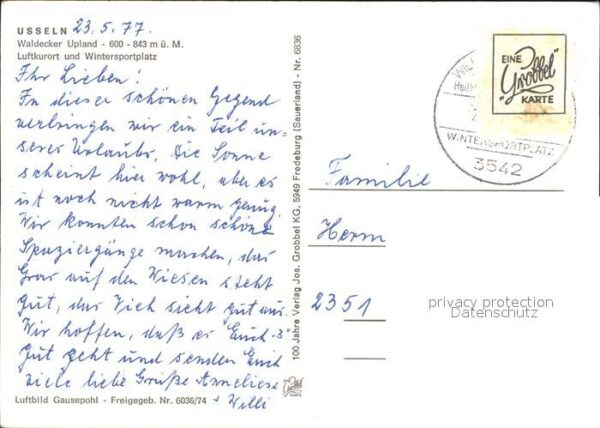 USSELN 23.5.77.
Waldecker Upland - 600 - 843 m ü. M.
Luftkurort und Wintersportplatz
Ihr Lieben!
In dieser schönen Gegend
verbringen wir ein Teil un-
seres Urlaubs. Die Sonne
scheint hier wohl, aber es
ist noch nicht warm genug.
Wir konnten schon schöne
Spaziergänge machen, das
Gras auf den Wiesen steht
gut, das Vieh sieht gut aus.
Wir hoffen, daß es Euch 3
gut geht und senden Euch
viele liebe Grüße Anneliese
+ Willi
Luftbild Gausepohl - Freigegeb. Nr. 6036/74
100 Jahre Verlag Jos. Grobbel KG, 5949 Fredeburg (Sauerland) - Nr. 6036
Grobbel
KARTE
EINE
"Grobbel"
KARTE
WILL
WINTERSPORTPLATZ
3542
Familie
Herm
2351
privacy protection
Datenschutz